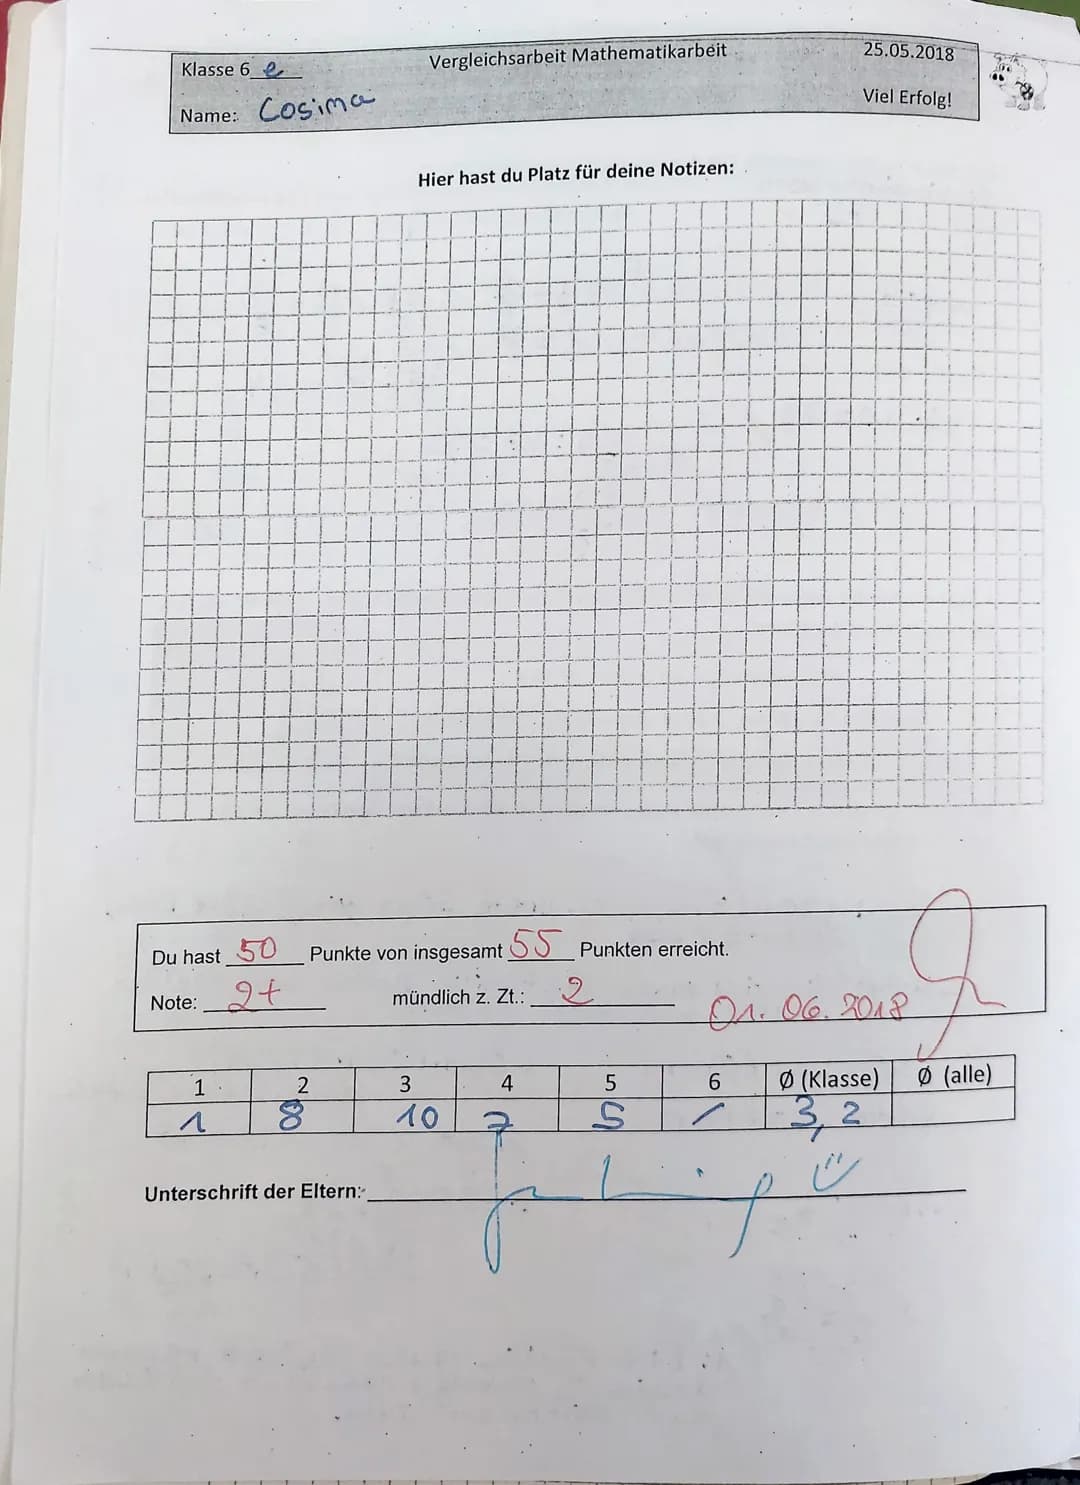 Klasse 6 e Vergleichsarbeit Mathematikarbeit 25.05.2018
Name: Cosima Viel Erfolg!
Hier hast du Platz für deine Notizen:
Du hast 50 Punkte von insgesamt 55 Punkten erreicht.
Note: 2+ mündlich z. Zt.: 2 01.06.2018
1 2 3 4 5 6 Ø (Klasse) Ø (alle)
1 8 10 7 5 / 3,2
Unterschrift der Eltern: